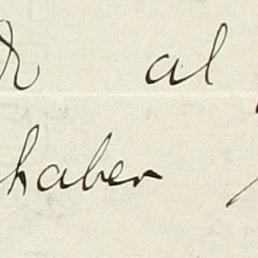 al
haber